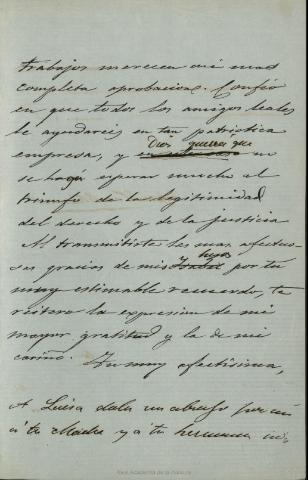 trabajos merecen mi mas
completa aprobacion. Confio
en que todos los amigos leales
te ayudareis en tan patriotica
Dios quiera que
empresa, y no
se haga esperar mucho el
triunfo de la legitimidad
del derecho y de la justicia
Al transmitirte las mas afectuo-
hijas
sas gracias de mis Isabel por tu
muy estimable recuerdo, te
reitero la expresion de mi
mayor gratitud y la de mi
cariño. Tu muy afectisima,
A Luisa dala un abrazo por mi
á tu Madre y á tu hermana
Real Academia de la Historia